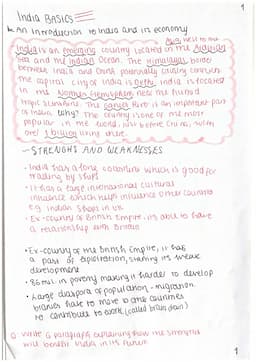 1
India BASICS
An introduction to India and its economy
Asia, next to the
India is an emerging country located in the
Sea and the Indian Ocean. The Himalayas border
between India and China potentially causing
The capital city of India is Delhi. India is located
in the Northern Hemisphere, near the humid
tropic sunshine. The Ganges River is an important part
of India. Why? The country is one of the most
popular in the world, just before China, with
over 1 billion living there.
STRENGTHS AND WEAKNESSES
• India has a long coastline which is good for
trading by ships
• It has a large international cultural
influence which helps influence other countries
e.g. Indian shops in UK
• Ex-country of British Empire - its able to have
a relationship with Britain
• Ex-country of the British Empire, it has
a past of exploitation, starting its weak
development
in poverty making it harder to develop
• Large diaspora of population - migration
means have to move to other countries
to continue to work (called brain drain)
Q: Write a paragraph explaining how the strengths
will benefit India in its future
1